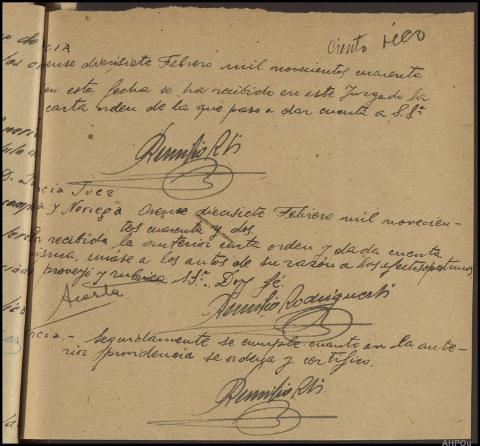 Ciento
Orense diecisiete Febrero mil novecientos cuarenta
en esta fecha se ha recibido en este Juzgado la
carta orden de la que paso a dar cuenta a S.Sª
Remigio Rtz
Juez
y Noriega Orense diecisiete Febrero mil novecien-
tos cuarenta y dos.
recibida la anterior carta orden y dada cuenta
unase a los autos de su razón a los efectos oportunos
proveyó y rubrica S.Sª. Doy fé.
Acosta
Remigio Rodriguez
Seguidamente se cumple cuanto en la ante-
rior providencia se ordena y certifico.
Remigio Rtz
AHPOu